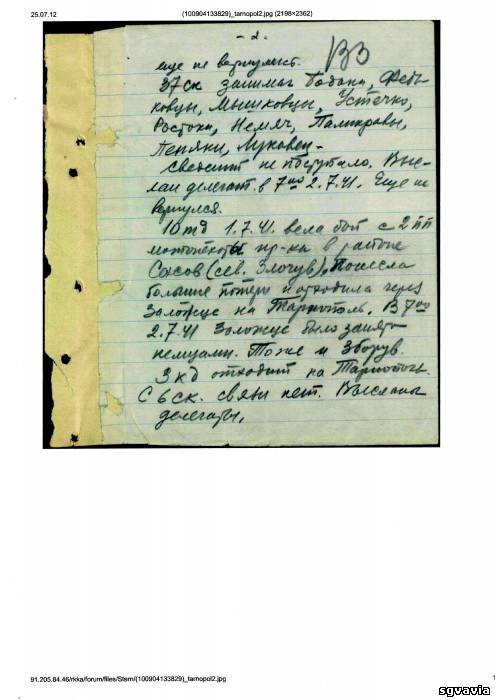 25.07.12
(100904133829)_tarnopol2.jpg (2198×2362)
- 2 -
ВЗ
еще не вернулись.
37 ск занимал
Мышковцы,
Немяч,
Лепяки, Луковец -
сведений не поступало. Выс-
лан делегат в 7.00 2.7.41. Еще не
вернулся.
10 тд 1.7.41. вела бой с 2 пп
пр-ка в районе
Сасов (сев. Злочув), Понесла
большие потери и отходила через
Заложце на Тарнополь. В 7.00
2.7.41 Заложце было занято
немцами. Тоже и Зборув.
3 кд отходит на Тарнополь.
С 6 ск. связи нет. Высланы
делегаты.
91.205.84.46/rkka/forum/files/Stern/(100904133829)_tarnopol2.jpg
sgvavia